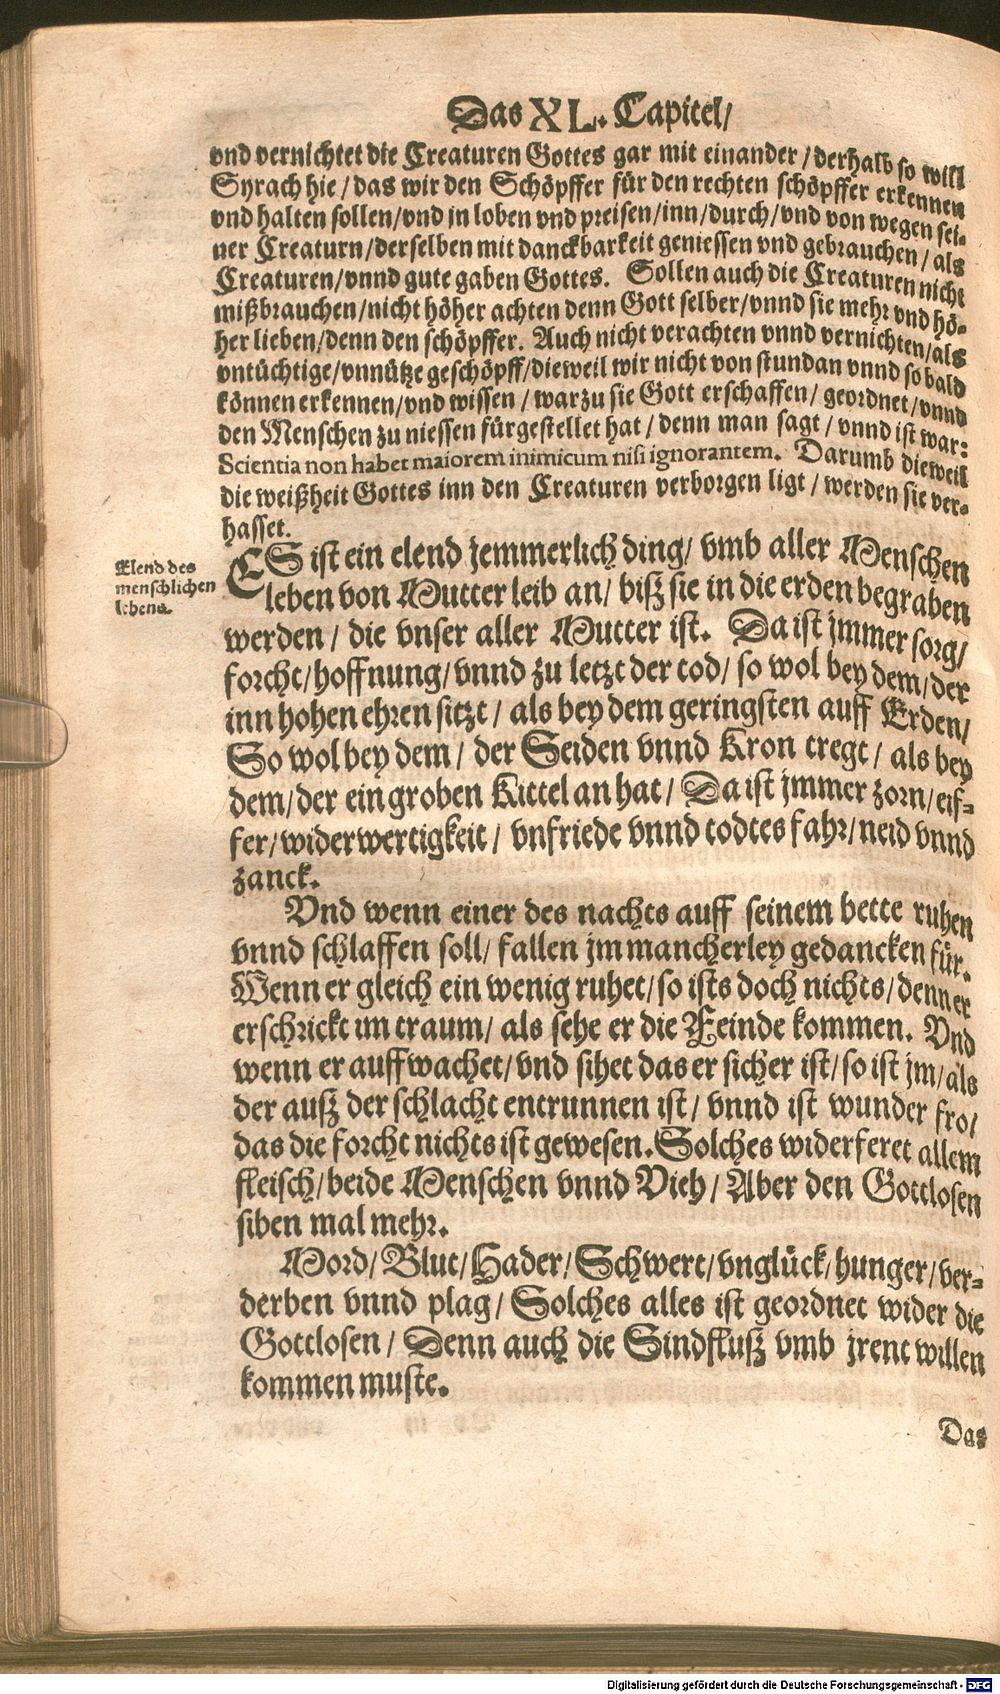 Das XL. Capitel/
vnd vernichtet die Creaturen Gottes gar mit einander / derhalb so will
Syrach hie / das wir den Schöpffer für den rechten schöpffer erkennen
vnd halten sollen/vnd in loben vnd preisen/inn/durch/vnd von wegen sei-
ner Creaturn/derselben mit danckbarkeit geniessen vnd gebrauchen / als
Creaturen/vnnd gute gaben Gottes. Sollen auch die Creaturen nicht
mißbrauchen/nicht höher achten denn Gott selber/vnnd sie mehr vnd hö-
her lieben/denn den schöpffer. Auch nicht verachten vnnd vernichten/als
vntüchtige/vnnütze geschöpff/dieweil wir nicht von stundan vnnd so bald
können erkennen/vnd wissen / warzu sie Gott erschaffen/ geordnet/vnnd
den Menschen zu niessen fürgestellet hat / denn man sagt / vnnd ist war:
Scientia non habet maiorem inimicum nisi ignorantem. Darumb dieweil
die weißheit Gottes inn den Creaturen verborgen ligt / werden sie ver-
hasset.
Elend des
menschlichen
lebens.
ES ist ein elend jemmerlich ding/ vmb aller Menschen
leben von Mutter leib an/ biß sie in die erden begraben
werden / die vnser aller Mutter ist. Da ist jmmer sorg/
forcht/hoffnung/vnnd zu letzt der tod/ so wol bey dem/der
inn hohen ehren sitzt / als bey dem geringsten auff Erden/
So wol bey dem / der Seiden vnnd Kron tregt / als bey
dem/der ein groben Kittel an hat / Da ist jmmer zorn/eif-
fer/widerwertigkeit / vnfriede vnnd todtes fahr/neid vnnd
zanck.
Vnd wenn einer des nachts auff seinem bette ruhen
vnnd schlaffen soll/ fallen jm mancherley gedancken für.
Wenn er gleich ein wenig ruhet/so ists doch nichts/denn er
erschrickt im traum/ als sehe er die Feinde kommen. Vnd
wenn er auffwachet/vnd sihet das er sicher ist/so ist jm/als
der auß der schlacht entrunnen ist / vnnd ist wunder fro/
das die forcht nichts ist gewesen. Solches widerferet allem
fleisch/beide Menschen vnnd Vieh / Aber den Gottlosen
siben mal mehr.
Mord/ Blut/Hader/Schwert/vnglück/hunger/ver-
derben vnnd plag/ Solches alles ist geordnet wider die
Gottlosen / Denn auch die Sindfluß vmb jrent willen
kommen muste.
Das
Digitalisierung gefördert durch die Deutsche Forschungsgemeinschaft - DFG